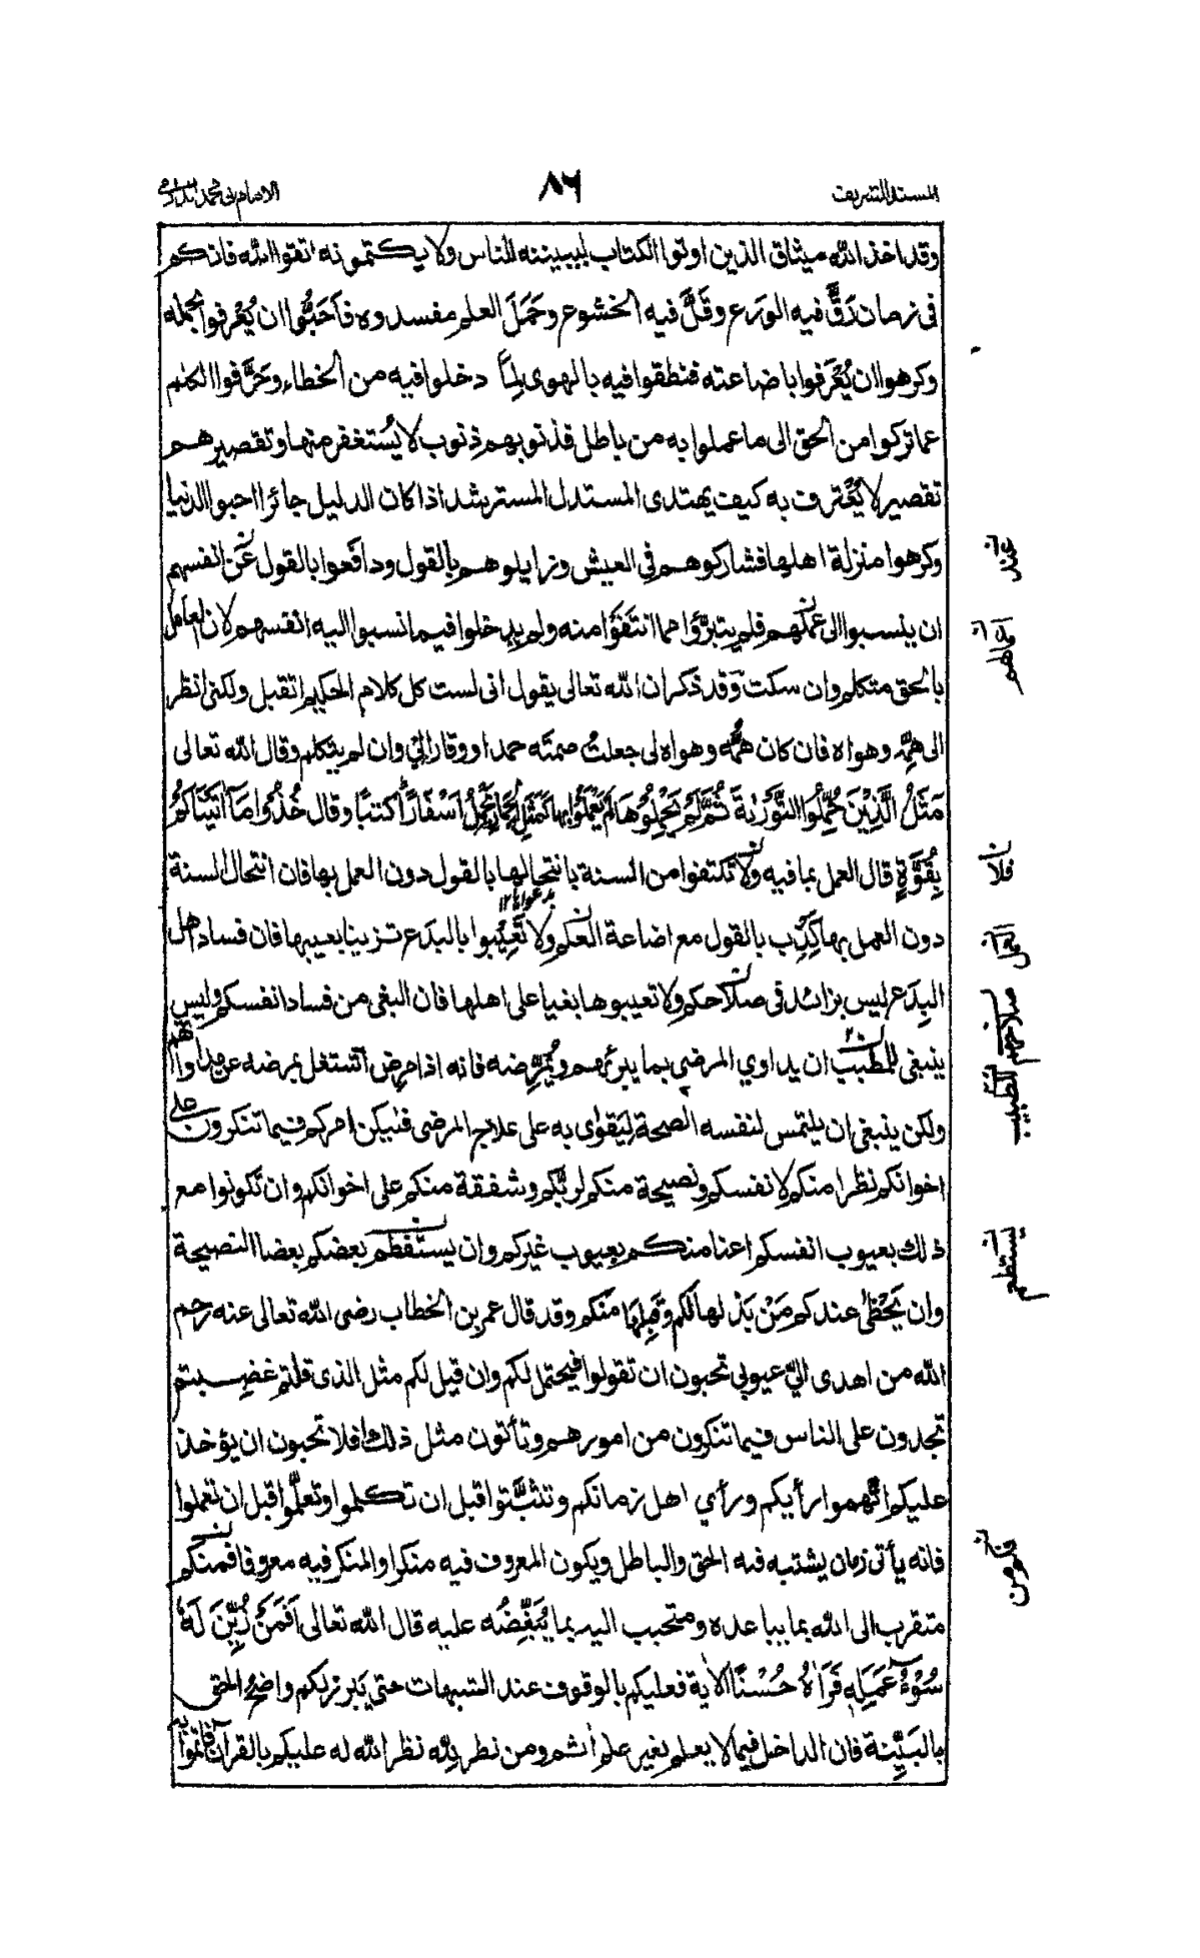 المسند الشريف ٨٦ الامام ابى محمد الدارمى
وقد اخذ الله ميثاق الذين اوتوا الكتاب ليبيننه للناس ولا يكتمونه اتقوا الله فانكم
فى زمان رَقَّ فيه الورَع وقَلَّ فيه الخشوع وحَمَلَ العلم مفسدوه فاَحَبُّوا ان يُعْرفوا بحمله
وكرهوا ان يُعْرَفوا باضاعته فنطقوا فيه بالهوى لِمَّا دخلوا فيه من الخطاء وحَرَّفوا الكلم
عما تركوا من الحق الى ما عملوا به من باطل فذنوبهم ذنوب لا يُستغفر منها وتقصيرهم
تقصير لا يُعْترف به كيف يهتدى المستدل المسترشد اذا كان الدليل جائرا احبوا الدنيا
وكرهوا منزلة اهلها فشاركوهم فى العيش وزايلوهم بالقول ودافعوا بالقول عَن انفسهم
ان ينسبوا الى عملهم فلم يتبرَّؤا مما انتَفَوُا منه ولم يدخلوا فيما نسبوا اليه انفسهم لان العامل
بالحق متكلم وان سكت وَقد ذكر ان الله تعالى يقول انى لست كل كلام الحكيم اتقبل ولكنى انظر
الى هَمِّه وهواه فان كان هَمُّه وهواه لى جعلتُ صمتَه حمدا ووقارا لِىْ وان لم يتكلم وقال الله تعالى
مَثَلُ الَّذِيْنَ حُمِّلُوا التَّوْرٰىةَ ثُمَّ لَمْ يَحْمِلُوْهَا لم يَعْمَلُوا بها كَمَثَلِ الْحِمَارِ يَحْمِلُ اَسْفَارًا كتبًا وقال خُذُوا مَا اٰتَيْنَاكُمْ
بِقُوَّةٍ قال العمل بما فيه ولا تكتفوا من السنة بانتحالها بالقول دون العمل بها فان انتحال السنة
دون العمل بها كَذِب بالقول مع اضاعة العلم ولا تَعِيْبوا بالبدَع تزينا بعيبها فان فساد اهل
البِدَع ليس بزائد فى صلاحكم ولا تعيبوها بغيا على اهلها فان البغى من فساد انفسكم وليس
ينبغى للمطبب ان يداوي المرضى بما يبرئهم ويُمْرِضه فانه اذا مرض اشتغل بمرضه عن مداواتهم
ولكن ينبغى ان يلتمس لنفسه الصحة لِيَقوٰى به على علاج المرضى فليكن امركم فيما تنكرون على
اخوانكم نظرا منكم لانفسكم ونصيحة منكم لربّكم وشفقة منكم على اخوانكم وان تكونوا مع
ذلك بعيوب انفسكم اعنا منكم بعيوب غيركم وان يستفطم بعضكم بعضا النصيحة
وان يَحْظٰى عندكم مَنْ بَذلها لكم وقَبِلَها منكم وقد قال عمر بن الخطاب رضى الله تعالى عنه رحم
الله من اهدى الىّ عيوبى تحبون ان تقولوا فيحتمل لكم وان قيل لكم مثل الذى قلتم غضبتم
تجدون على الناس فيما تنكرون من امورهم وتأتون مثل ذلك افلا تحبون ان يؤخذ
عليكم اتَّهموا رأيكم ورأي اهل زمانكم وتثبَّتوا قبل ان تكلموا وتعلَّموا قبل ان تعملوا
فانه يأتى زمان يشتبه فيه الحق والباطل ويكون المعروف فيه منكرا والمنكر فيه معروفا فمنكم
متقرب الى الله بما يباعده ومتحبب اليه بما يُبَغِّضُه عليه قال الله تعالى اَفَمَنْ زُيِّنَ لَهٗ
سُوْٓءُ عَمَلِهٖ فَرَاٰهُ حُسْنًا الْاٰية فعليكم بالوقوف عند الشبهات حتى يَبرز لكم واضحُ الحق
بالبَيِّنة فان الداخل فيما لا يعلم بغير علم اٰثم ومن نظر لِلّٰه نظر الله له عليكم بالقراٰن فأتموا به
عند
اعمالهم
فلا
العمل
صلاحهم
للطبيب
يستطعم
فكم من